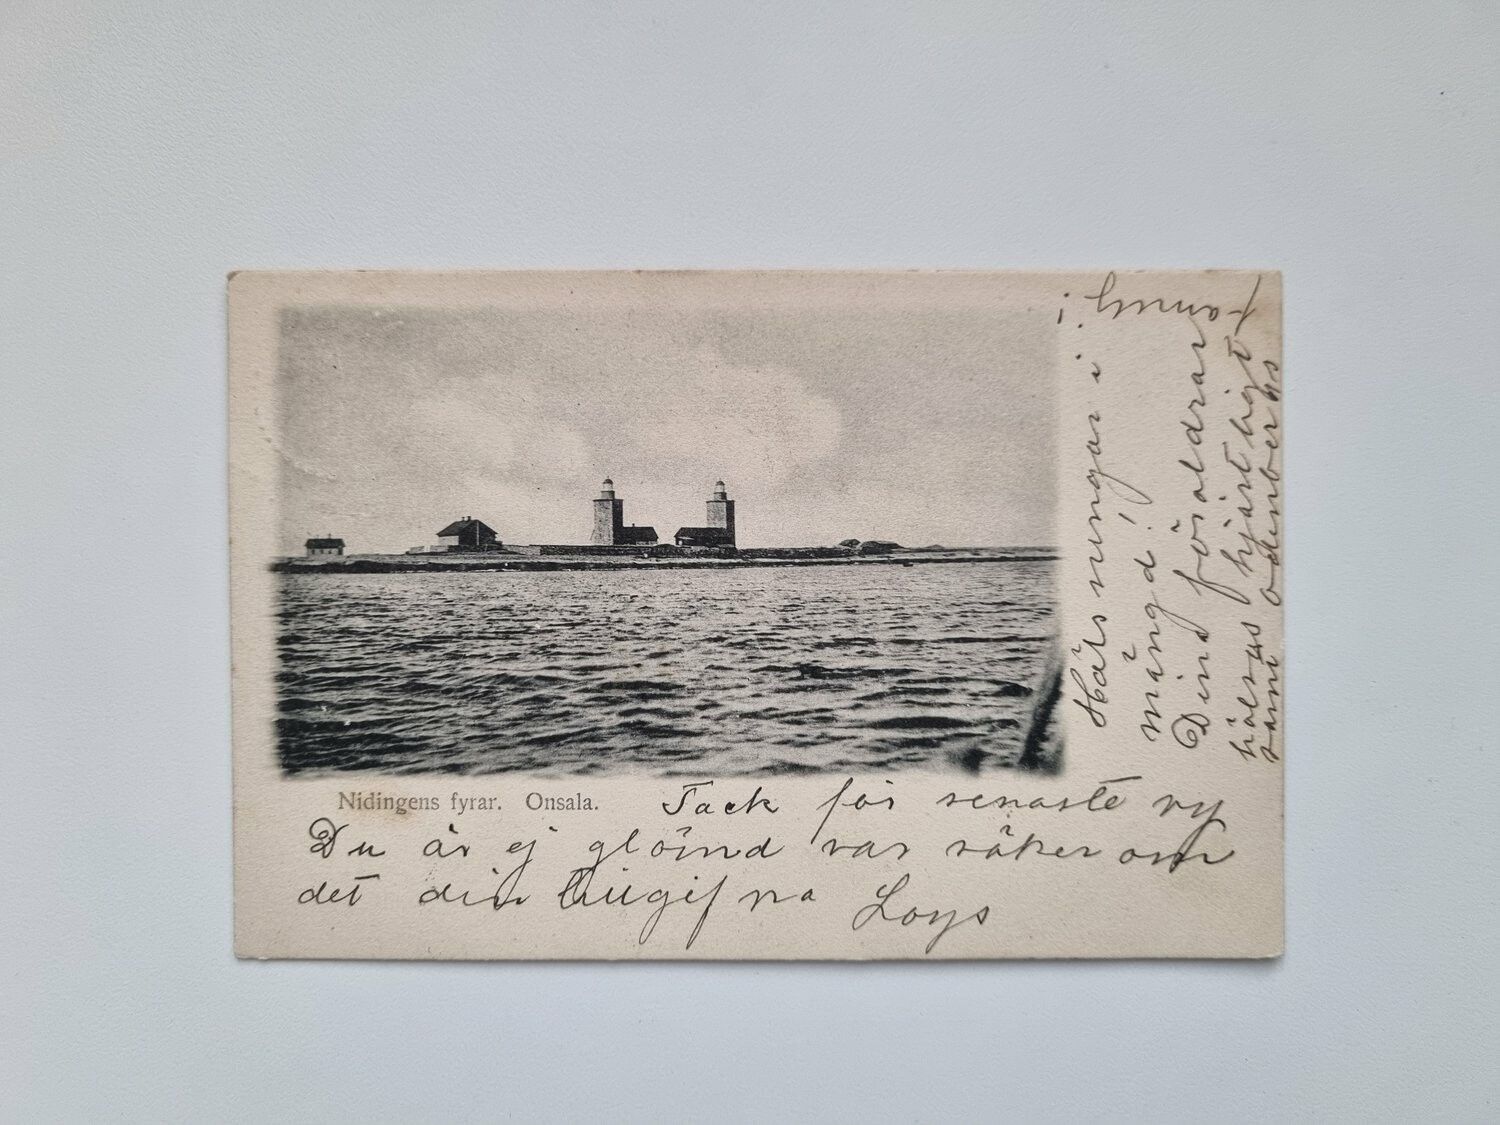 Nidingens fyrar. Onsala.
Tack för senaste ny
Du är ej glömd var säker om
det din tillgifna Loys
Hälsningar i
mängd!
Dina föräldrar
hälsas hjärtligt
samt Odenbergs